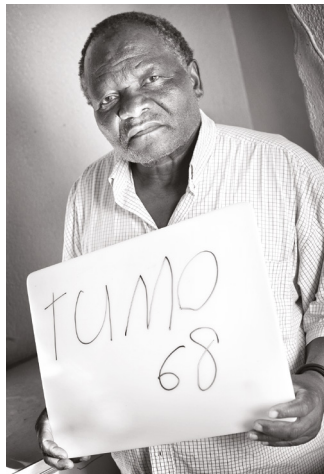 TUMO
68